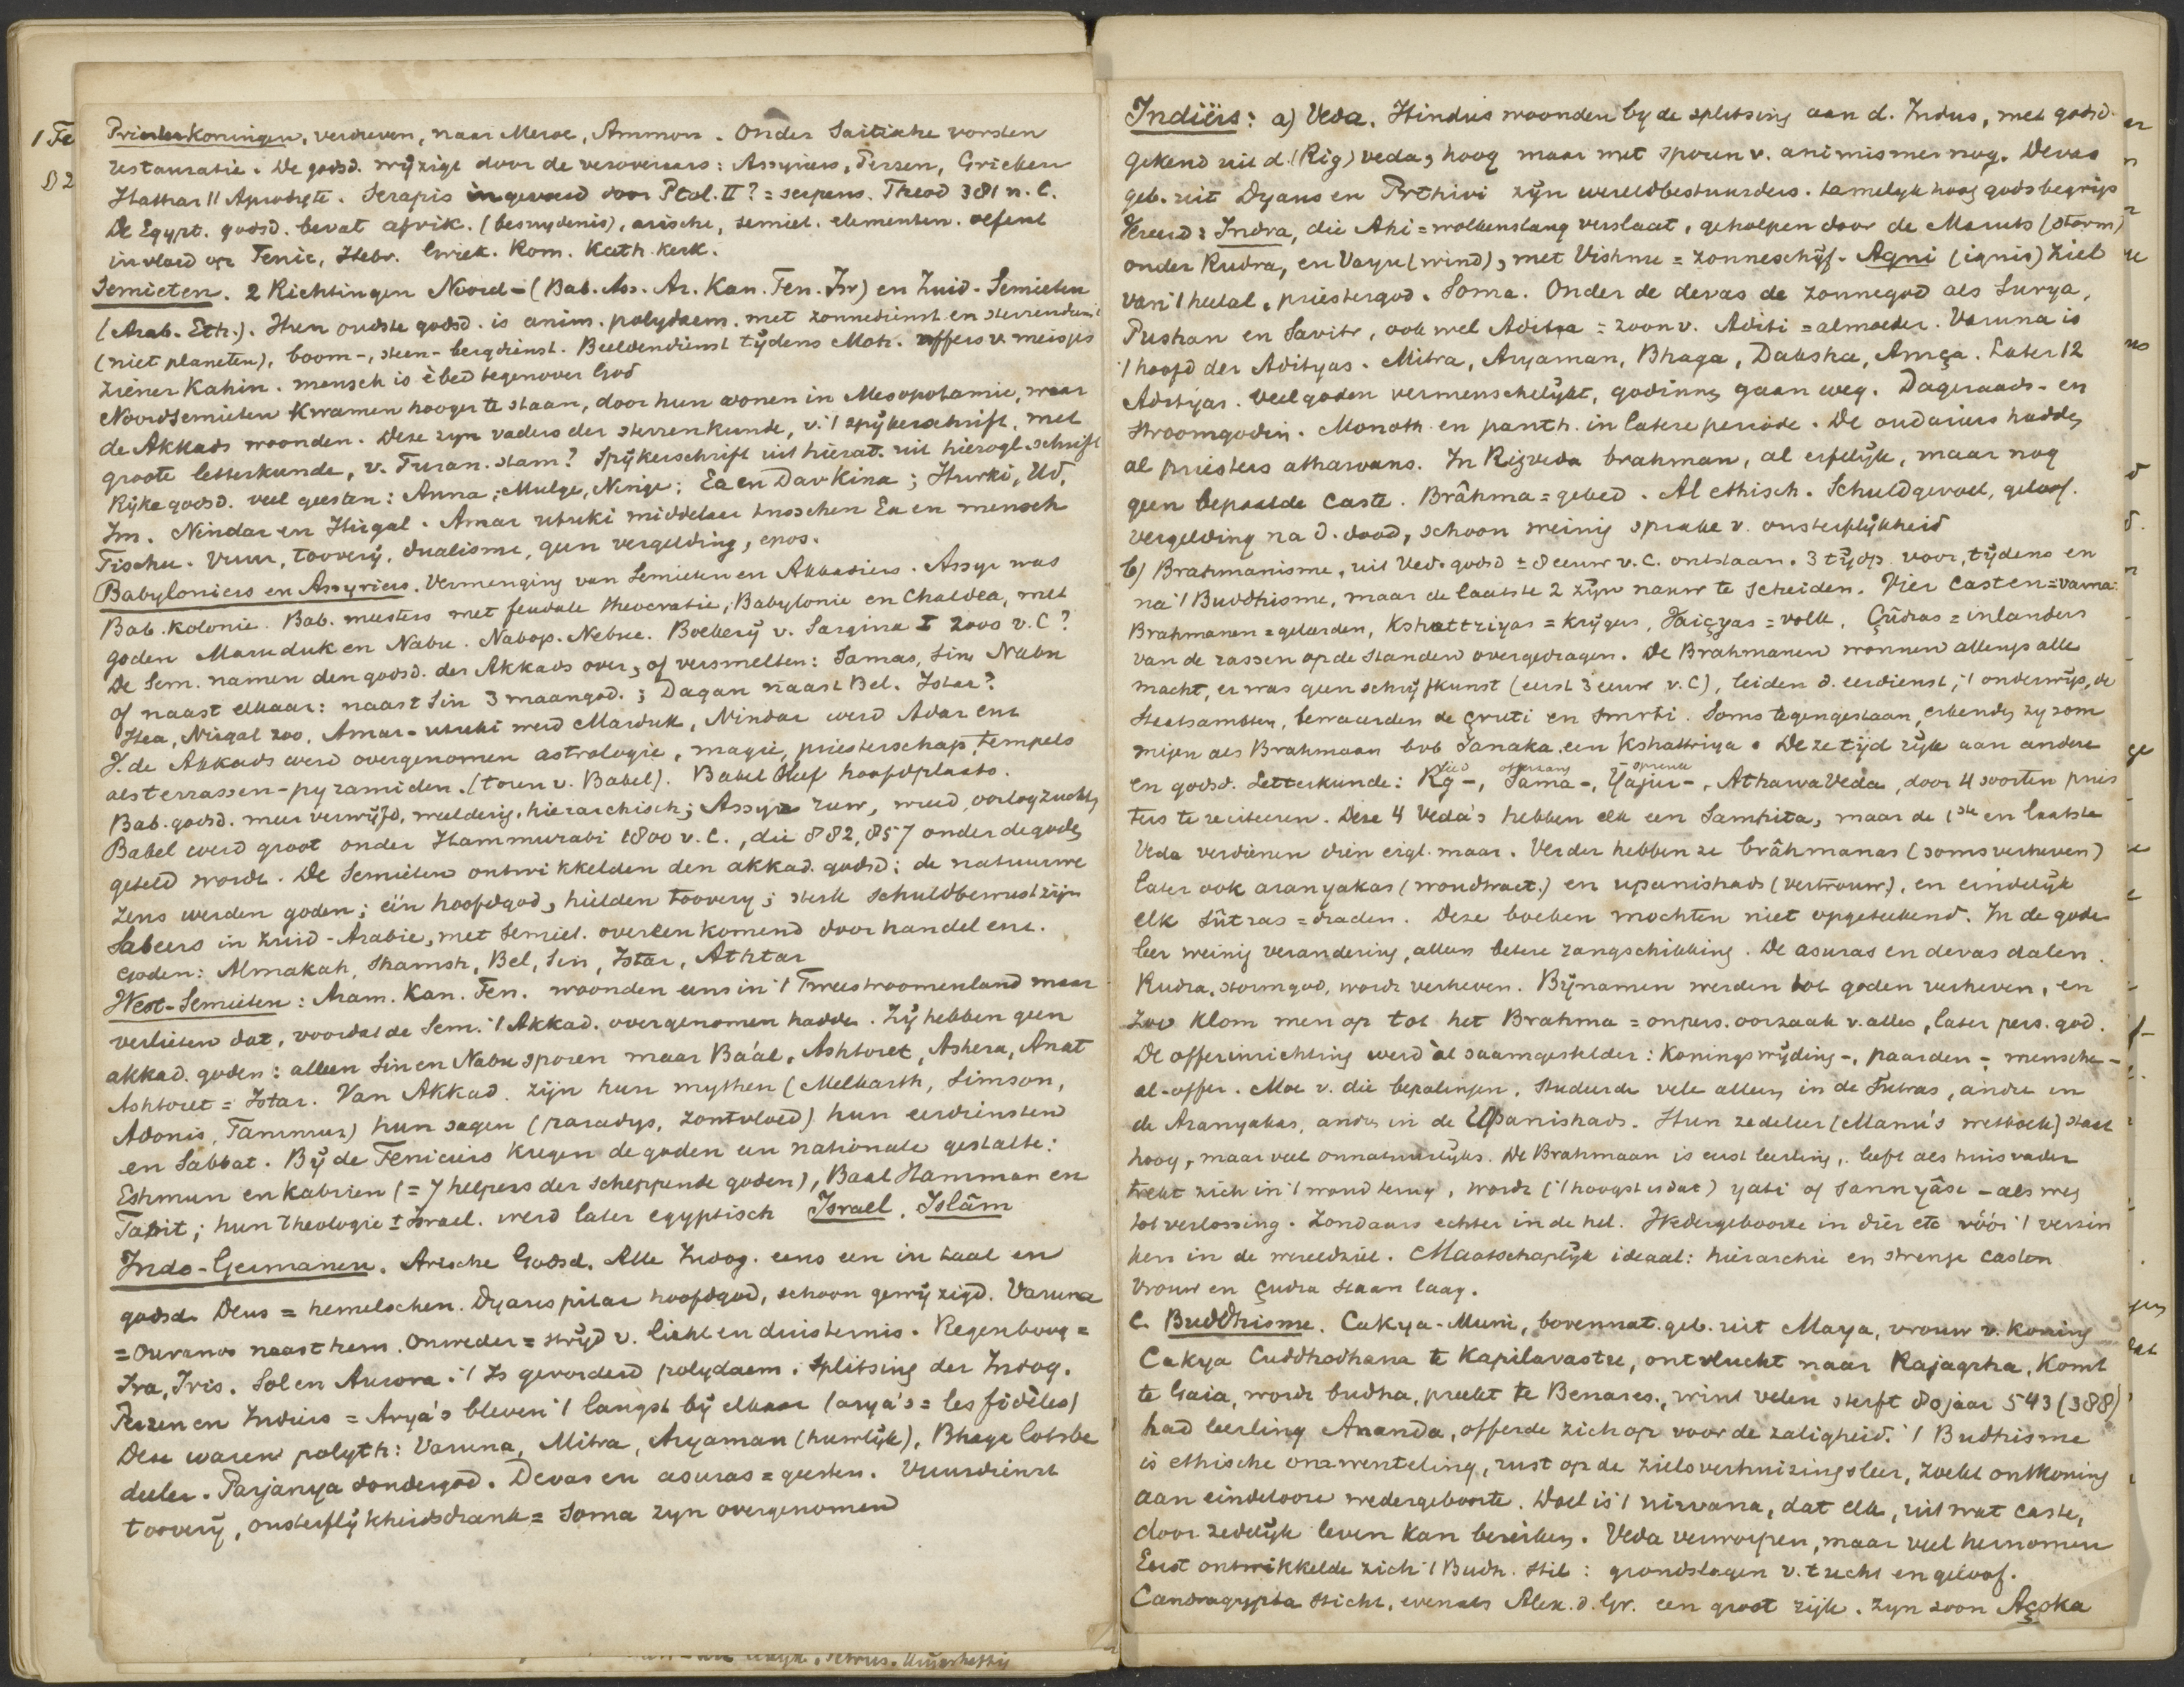 Priesterkoningen, verdreven, naar Meroe, Ammon. Onder Saitische vorsten
restauratie. De godsd. wijzigt door de veroveraars: Assyriers, Perzen, Grieken
Hathar || Aprodyte. Serapis ingevoerd door Ptol. II? = serpens. Theod 381 n. C.
De Egypt. godsd. bevat afrik. (besnydenis), arische, semiet. elementen. oefent
invloed op Fenic, Hebr. Griek. Rom. Kath. kerk.
Semieten. 2 Richtingen Noord- (Bab. Ass. Ar. Kan. Fen. Isr) en Zuid-Semieten
(Arab. Eth.). Hun oudste godsd. is anim. polydaem. met zonnedienst en sterrendienst
(niet planeten), boom-, steen- bergdienst. Beeldendienst tijdens Moh. offers v. meisjes
ziener Kahin. mensch is èbed tegenover God
Noordsemieten kwamen hooger te staan, door hun wonen in Mesopotamie, waar
de Akkads woonden. Deze zyn vaders der sterrenkunde, v. 't spijkerschrift, met
groote letterkunde, v. Turan. stam? Spijkerschrift uit hiërat. uit hierogl. schrift
Rijke godsd. veel geesten: Anna, Mulge, Ninge; Ea en Davkina; Hurki, Ud,
Im. Nindar en Nirgal. Amar utuki middelaar tusschen Ea en mensch
Fischu. Vuur, toovery, dualisme, geen vergelding, epos.
Babyloniers en Assyriers. Vermenging van Semieten en Akkadiers. Assyr was
Bab. kolonie. Bab. meesters met feudale theocratie; Babylonie en Chaldea, met
goden Maruduk en Nabu. Nabop. Nebuc. Boekery v. Sargina I 2000 v. C?
De Sem. namen den godsd. der Akkads over, of versmelten: Samas, Sin, Nabu
of naast elkaar: naast Sin 3 maangod.; Dagan naast Bel. Istar?
Hea, Nirgal zoo. Amar-utuki werd Marduk, Nindar werd Adar enz
V. de Akkads werd overgenomen astrologie, magie, priesterschap, tempels
als terrassen-pyramiden. (toren v. Babel). Babel bleef hoofdplaats.
Bab. godsd. meer verwijfd, weelderig, hierarchisch; Assyr. ruw, wreed, oorlogzuchtig
Babel werd groot onder Hammurabi 1800 v. C., die 882, 857 onder de goden
geteld wordt. De Semieten ontwikkelden den akkad. godsd: de natuurwe
zens werden goden; één hoofdgod, hielden toovery; sterk schuldbewustzijn
Sabeers in Zuid-Arabie, met Semiet. overeenkomend door handel enz.
goden: Almakah, Shamsh, Bel, Sin, Istar, Athtar
West-Semieten: Aram. Kan. Fen. woonden eens in 't Tweestroomenland maar
verlieten dat, voordat de Sem. 't Akkad. overgenomen hadde. Zij hebben geen
akkad. goden: alleen Sin en Nabu sporen maar Ba'al, Ashtoret, Ashera, Anat
Ashtoret = Istar. Van Akkad. zijn hun mythen (Melkarth, Simson,
Adonis, Tammuz) hun sagen (paradys, zontvloed) hun eerdiensten
en Sabbat. Bij de Feniciers kregen de goden een nationale gestalte:
Eshmun en Kabiren (= 7 helpers der scheppende goden), Baal Hamman en
Tanit; hun theologie ± Israel. werd later egyptisch Israel. Islâm
Indo-Germanen. Arische Godsd. Alle Indog. eens een in taal en
godsd. Deus = hemelschen. Dyaus pitar hoofdgod, schoon gewijzigd. Varuna
= Ouranos naast hem. Onweder = strijd v. licht en duisternis. Regenboog =
Ira, Iris. Sol en Aurora. 't Is geworden polydaem. Splitsing der Indog.
Perzen en Indiers = Arya's bleven 't langst bij elkaar (arya's = les fidèles)
Deze waren polyth: Varuna, Mitra, Aryaman (huwlijk), Bhaga lotsbe
deeler. Parjanya dondergod. Devas en asuras = geesten. Vuurdienst
toovery, onsterflijkheidsdrank = Soma zyn overgenomen
Indiërs: a) Veda. Hindus woonden by de splitsing aan d. Indus, met godsd.
gekend uit d. (Rig) veda, hoog maar met sporen v. animisme nog. Devas
geb. uit Dyaus en Prthivi zijn wereldbestuurders. tamelyk hoog godsbegrip
Vereerd: Indra, die Ahi = wolkenslang verslaat, geholpen door de Maruts (storm)
onder Rudra, en Vayu (wind), met Vishnu = zonneschijf. Agni (ignis) ziel
van 't heelal, priestergod. Soma. Onder de devas de zonnegod als Surya,
Pushan en Savitr, ook wel Aditya = zoon v. Aditi = almoeder. Varuna is
't hoofd der Adityas. Mitra, Aryaman, Bhaga, Daksha, Amça. Later 12
Adityas. Veel goden vermenschelijkt, godinnen gaan weg. Dageraads- en
stroomgodin. Monoth. en panth. in latere periode. De oudariers hadden
al priesters atharvans. In Rigveda brahman, al erfelijk, maar nog
geen bepaalde caste. Brâhma = gebed. Al ethisch. Schuldgevoel, geloof.
vergelding na d. dood, schoon weinig sprake v. onsterflijkheid
b) Brahmanisme, uit Ved. godsd ± 8 eeuw v. C. ontstaan. 3 tijdp. voor, tijdens en
na 't Buddhisme, maar de laatste 2 zijn nauw te scheiden. Vier casten = varna
Brahmanen = geleerden, Kshattriyas = krijgers, Vaiçyas = volk, Çûdras = inlanders
van de rassen op de standen overgedragen. De Brahmanen wonnen allengs alle
macht, er was geen schrijfkunst (eerst 3 eeuw v. C), leiden d. eerdienst, 't onderwijs, de
Staatsambten, bewaarden de çruti en smrti. Soms tegengestaan, erkenden zy som
migen als Brahmaan bvb Janaka een Kshattriya. Deze tijd rijk aan andere
en godsd. Letterkunde: Rg-, Sama-, Yajur-, AtharvaVeda, door 4 soorten pries
lied offerzang spreuk
ters te reciteeren. Deze 4 Veda's hebben elk een Samhita, maar de 1ste en laatste
Veda verdienen dien eigl. maar. Verder hebben ze brâhmanas (soms verheven)
later ook aranyakas (woudtract.) en upanishads (vertrouw.), en eindelijk
elk Sûtras = draden. Deze boeken mochten niet opgeteekend. In de gods
leer weinig verandering, alleen betere rangschikking. De asuras en devas dalen.
Rudra, stormgod, wordt verheven. Bijnamen werden tot goden verheven, en
zoo klom men op tot het Brahma = onpers. oorzaak v. alles, later pers. god.
De offerinrichting werd al saamgestelder: Koningswijding-, paarden-, menschen-
al-offer. Moe v. die bepalingen, studeerde vele alleen in de Sutras, andre in
de Aranyakas, andre in de Upanishads. Hun zedeleer (Manu's wetboek) staat
hoog, maar veel onnatuurlijks. De Brahmaan is eerst leerling, leeft als huisvader
trekt zich in 't woud terug, wordt ('t hoogst is dat) yati of sannyâsi - als weg
tot verlossing. Zondaars echter in de hel. Wedergeboorte in dier etc vóór 't verzin
ken in de wereldziel. Maatschaplijk ideaal: hierarchie en strenge casten
Vrouw en çudra staan laag.
c. Buddhisme. Cakya-Muni, bovennat. geb. uit Maya, vrouw v. koning
Cakya Cuddhodhana te Kapilavastu, ontvlucht naar Rajagrha, komt
te Gaia, wordt budha, preekt te Benares, wint velen sterft 80 jaar 543 (388)
had leerling Ananda, offerde zich op voor de zaligheid. 't Budhisme
is ethische omwenteling, rust op de zielsverhuizingsleer, zoekt ontkoming
aan eindelooze wedergeboorte. Doel is 't nirvana, dat elk, uit wat caste,
door zedelijk leven kan bereiken. Veda verworpen, maar veel hernomen
Eerst ontwikkelde zich 't Budh. stil: grondslagen v. tucht en geloof.
Candragypta sticht, evenals Alex. d. Gr. een groot rijk. Zyn zoon Açoka